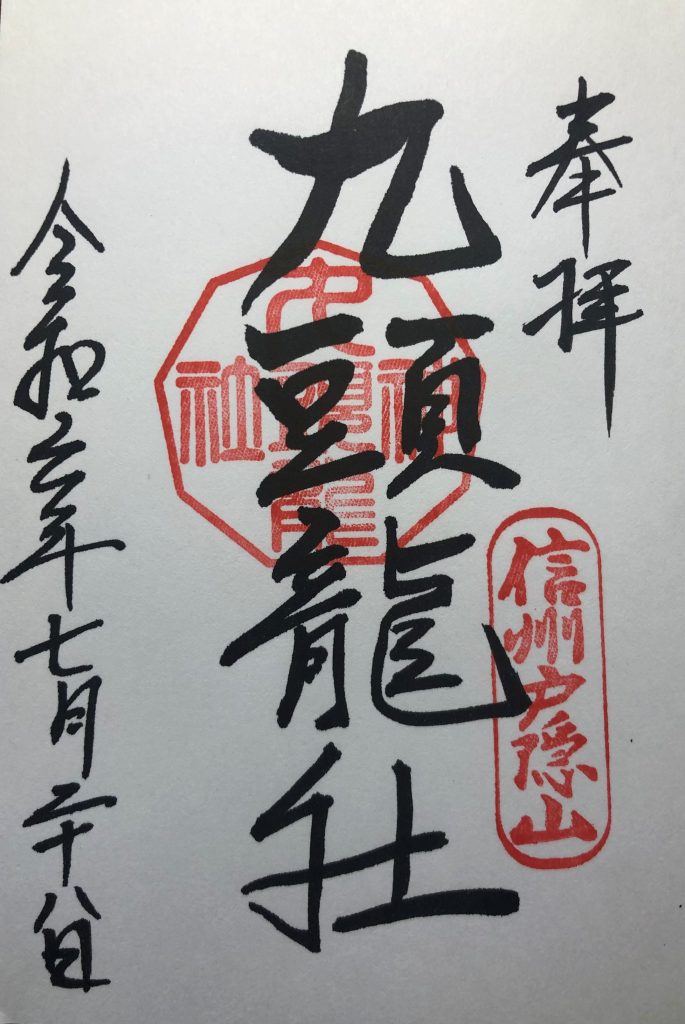 奉拝
信州戸隠山
九頭龍社
九頭龍
神社
令和六年七月二十八日